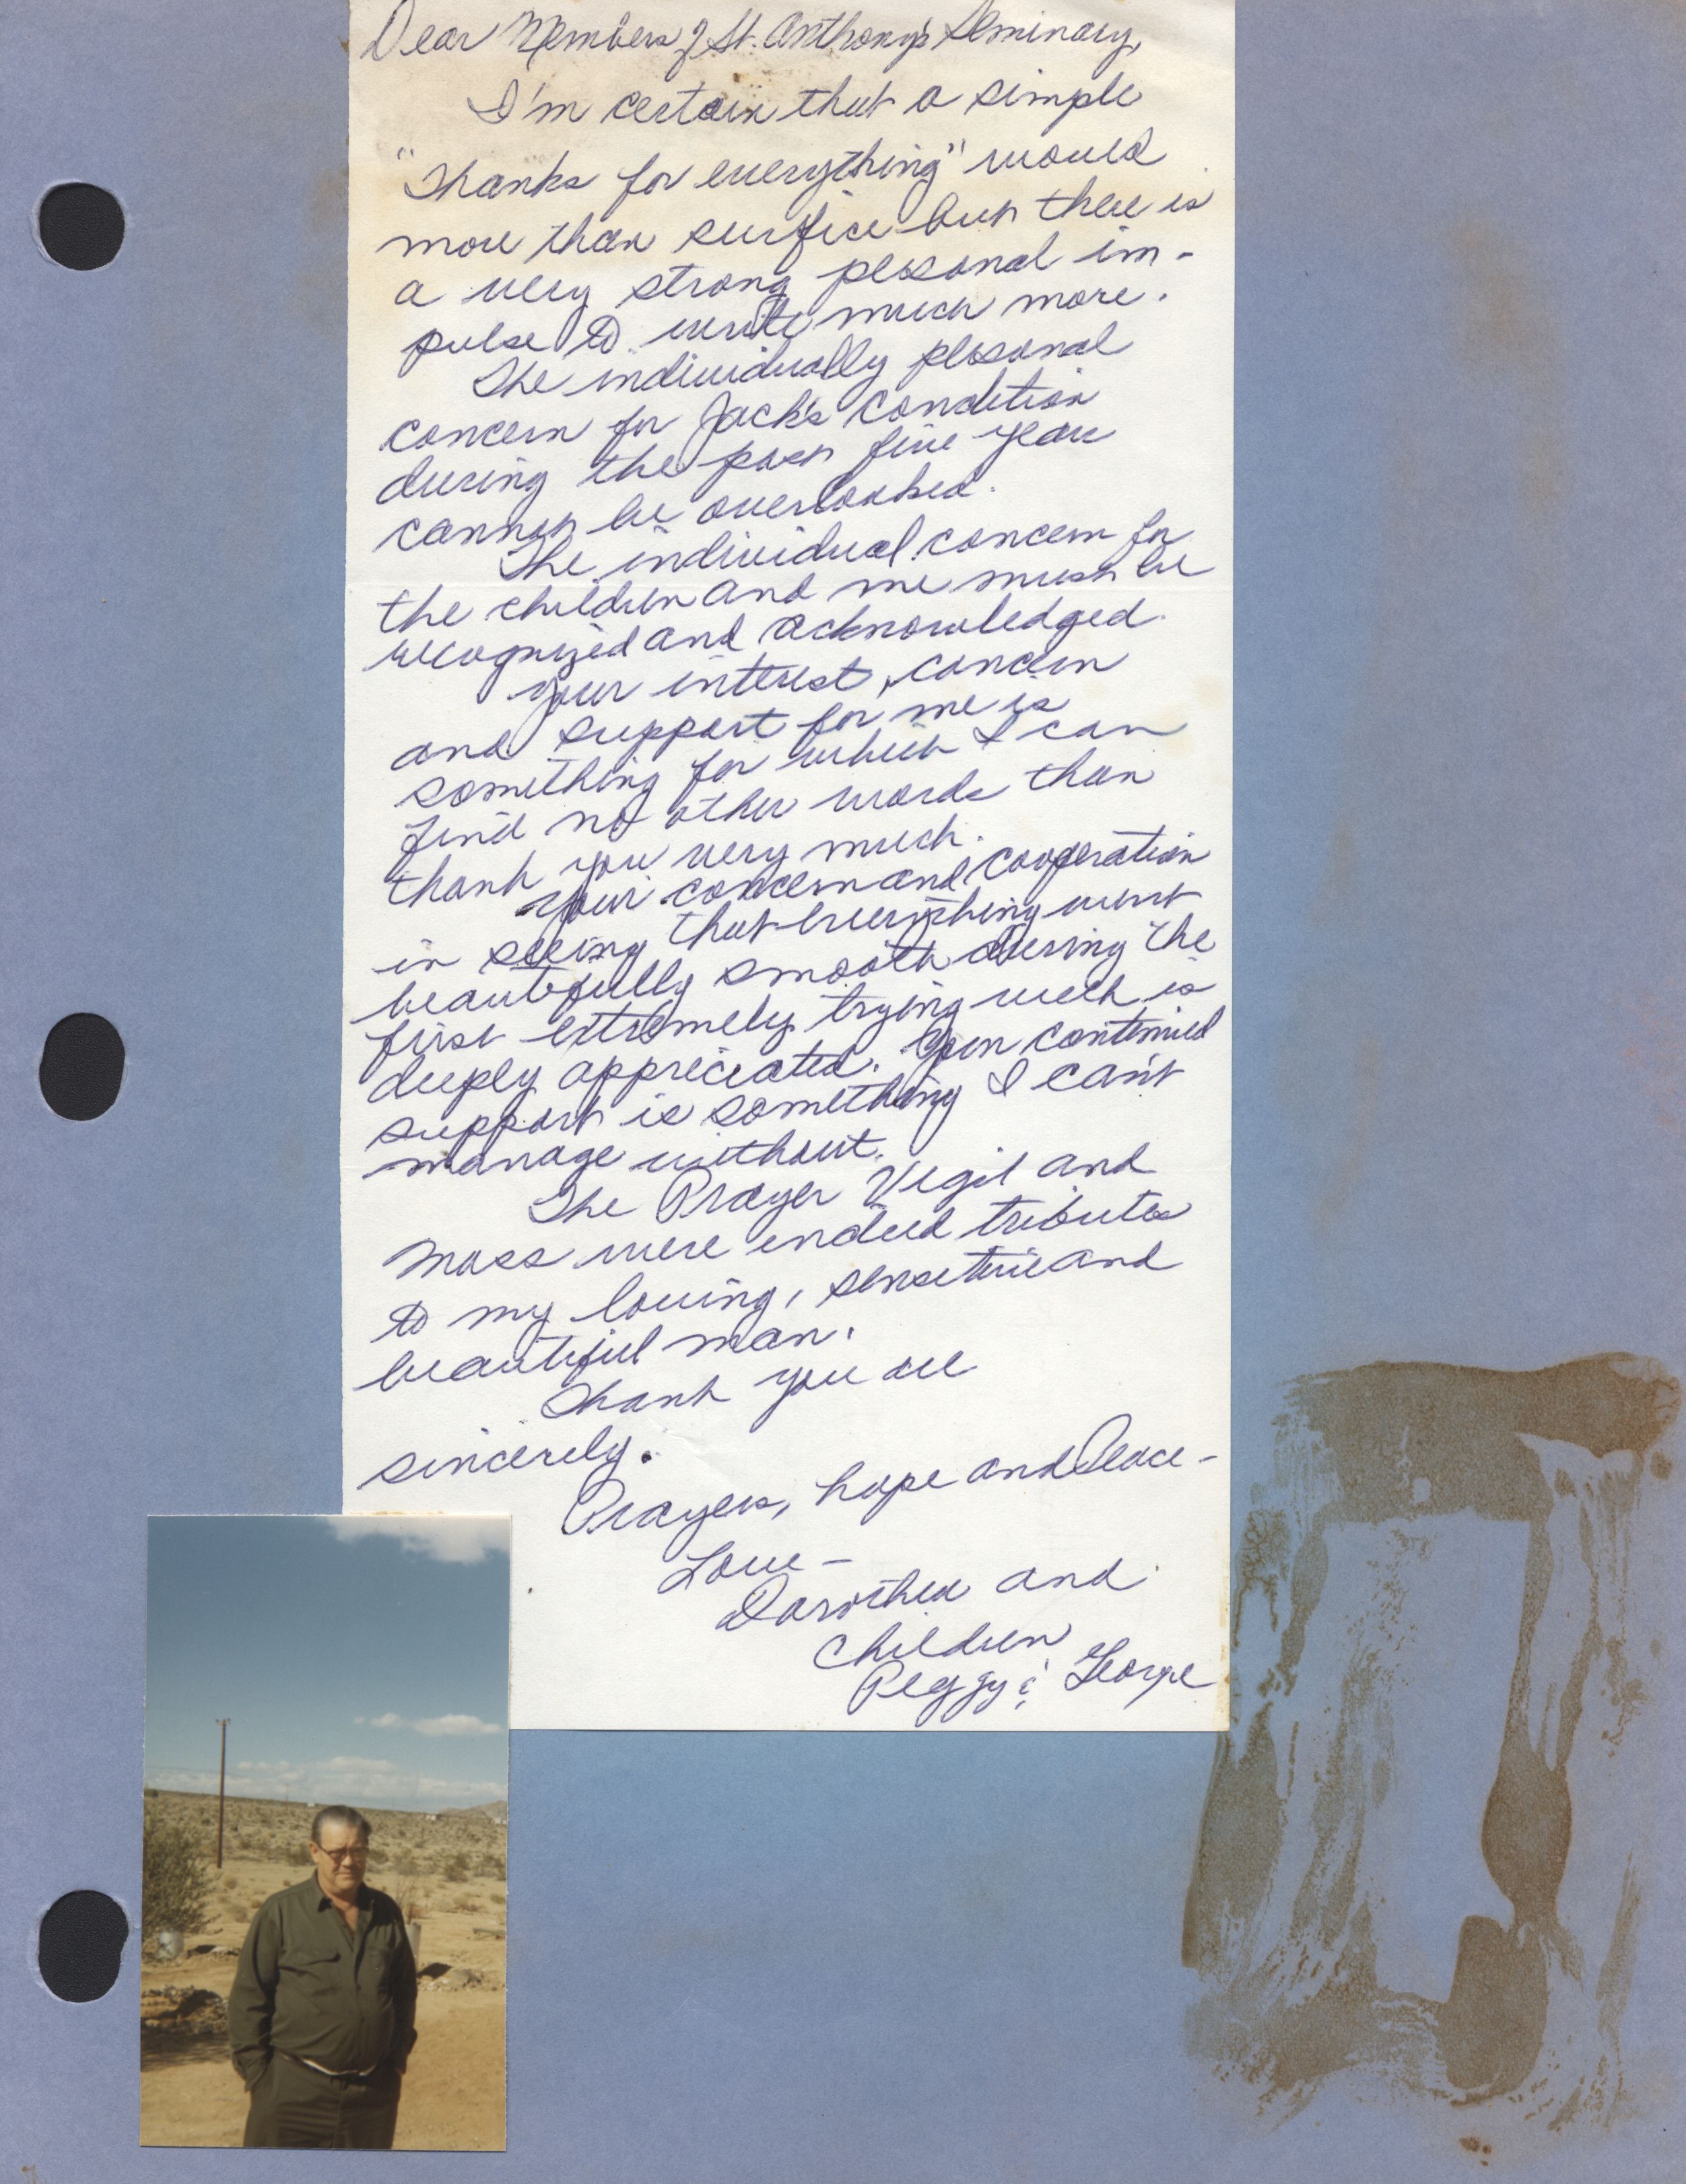 Dear Members of St. Anthony's Seminary,
I'm certain that a simple
"Thanks for everything" would
more than suffice but there is
a very strong personal im-
pulse to write much more.
The individually personal
concern for Jack's condition
during the past five years
cannot be overlooked.
The individual concern for
the children and me must be
recognized and acknowledged.
Your interest, concern
and support for me is
something for which I can
find no other words than
thank you very much.
Your concern and cooperation
in seeing that everything went
beautifully smooth during the
first extremely trying week is
deeply appreciated. Your continued
support is something I can't
manage without.
The Prayer Vigil and
Mass were indeed tributes
to my loving, sensitive and
beautiful man.
Thank you all
sincerely.
Prayers, hope and Peace -
Love -
Dorothea and
Children
Peggy & George